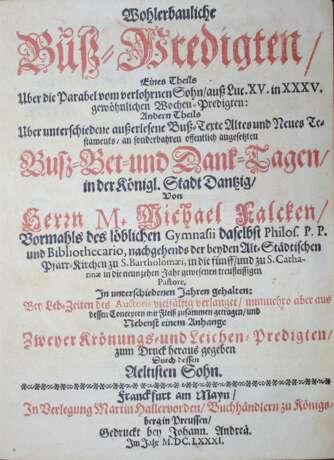 Wohlerbauliche
Buß-Predigten/
Eines Theils
Uber die Parabel vom verlohrnen Sohn/auß Luc. XV. in XXXV.
gewöhnlichen Wochen-Predigten:
Andern Theils
Uber unterschiedene außerlesene Buß-Texte Altes und Neues Te-
staments/ an sonderbahren öffentlich angesetzten
Buß-Bet-und Dank-Tagen/
in der Königl. Stadt Dantzig/
Von
Herrn M. Michael Falcken/
Vormahls des löblichen Gymnasii daselbst Philos. P. P.
und Bibliothecario, nachgehends der beyden Alt-Städtischen
Pfarr-Kirchen zu S. Bartholomæi, in die fünff/ und zu S. Catha-
rinæ in die neunzehen Jahr gewesenen treufleissigen
Pastore,
In unterschiedenen Jahren gehalten:
Bey Leb-Zeiten des Auctoris vielfältig verlanget/ nunmehro aber aus
dessen Concepten mit Fleiß zusammen getragen/ und
Nebenst einem Anhange
Zweyer Krönungs-und Leichen-Predigten/
zum Druck heraus gegeben
Durch dessen
Aeltisten Sohn.
Franckfurt am Mayn/
In Verlegung Martin Hallervorden/ Buchhändlern zu Königs-
berg in Preussen/
Gedruckt bey Johann. Andreä.
Im Jahr M. DC. LXXXI.